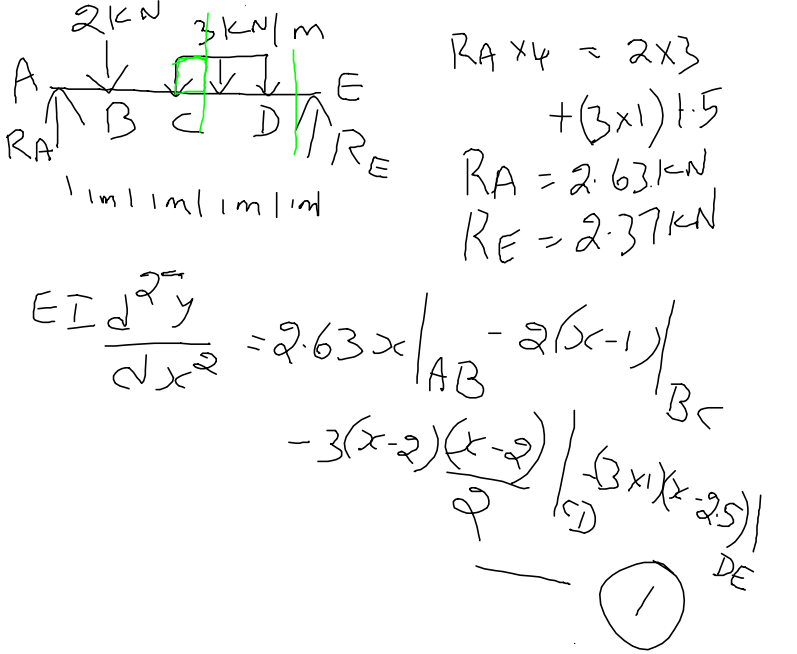 2KN 3KN/m
A B C D E
RA RE
1m 1m 1m 1m
RA x4 = 2x3
+(3x1)1.5
RA = 2.63KN
RE = 2.37KN
EI d²y/dx² = 2.63x|AB - 2(x-1)|BC
-3(x-2)(x-2)/2|CD -(3x1)(x-2.5)|DE
1